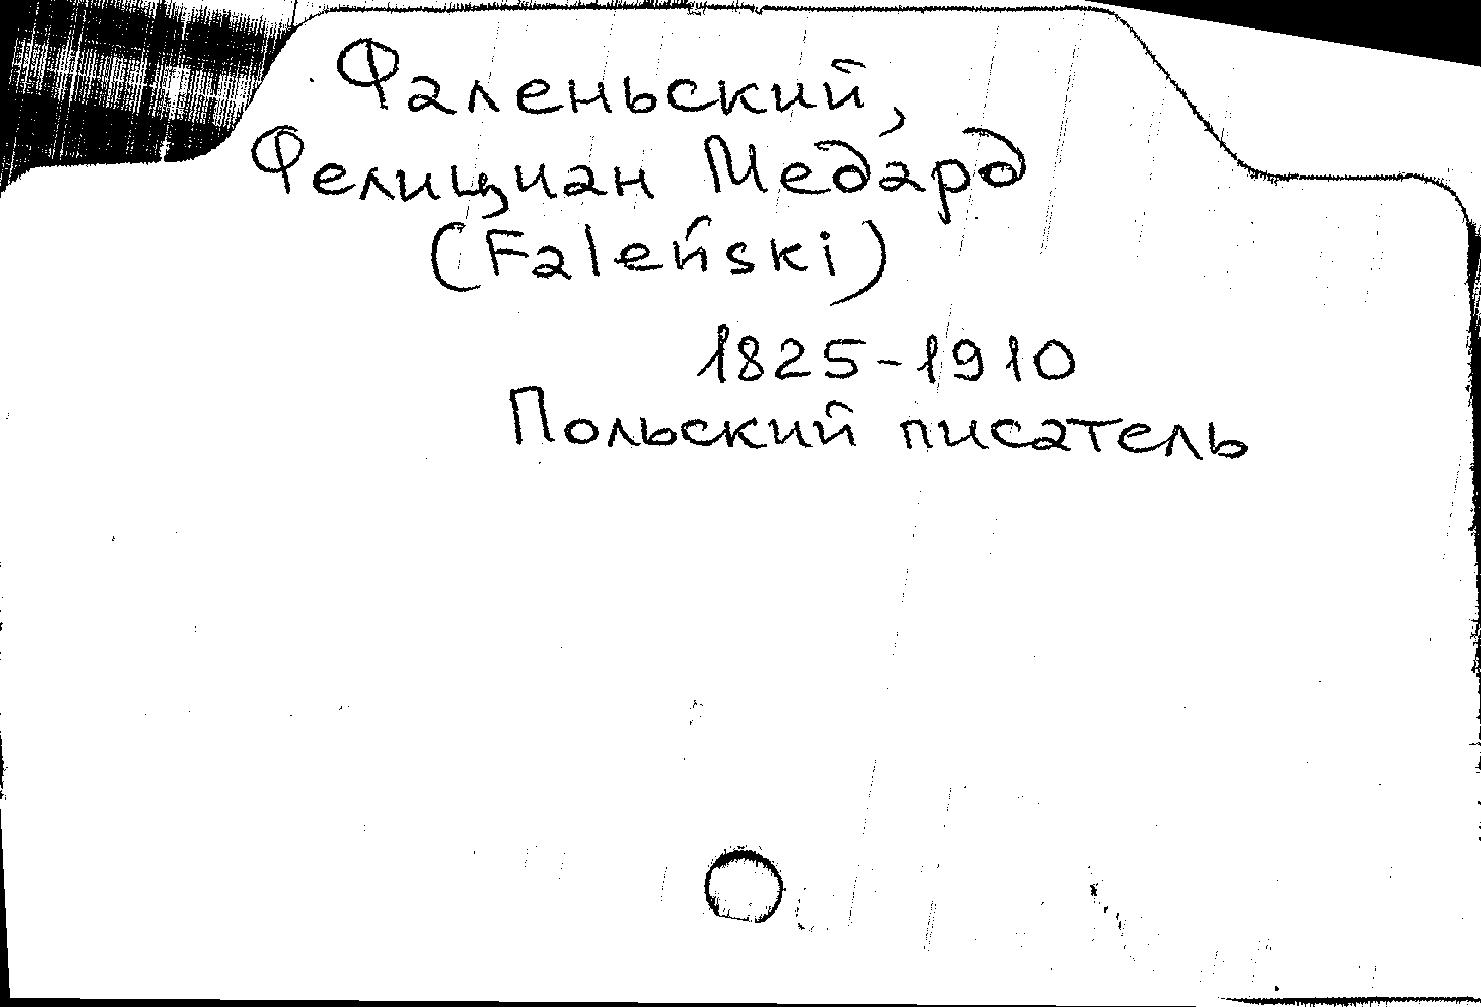 Фаленьский,
Фелициан Медард
(Faleński)
1825-1910
Польский писатель